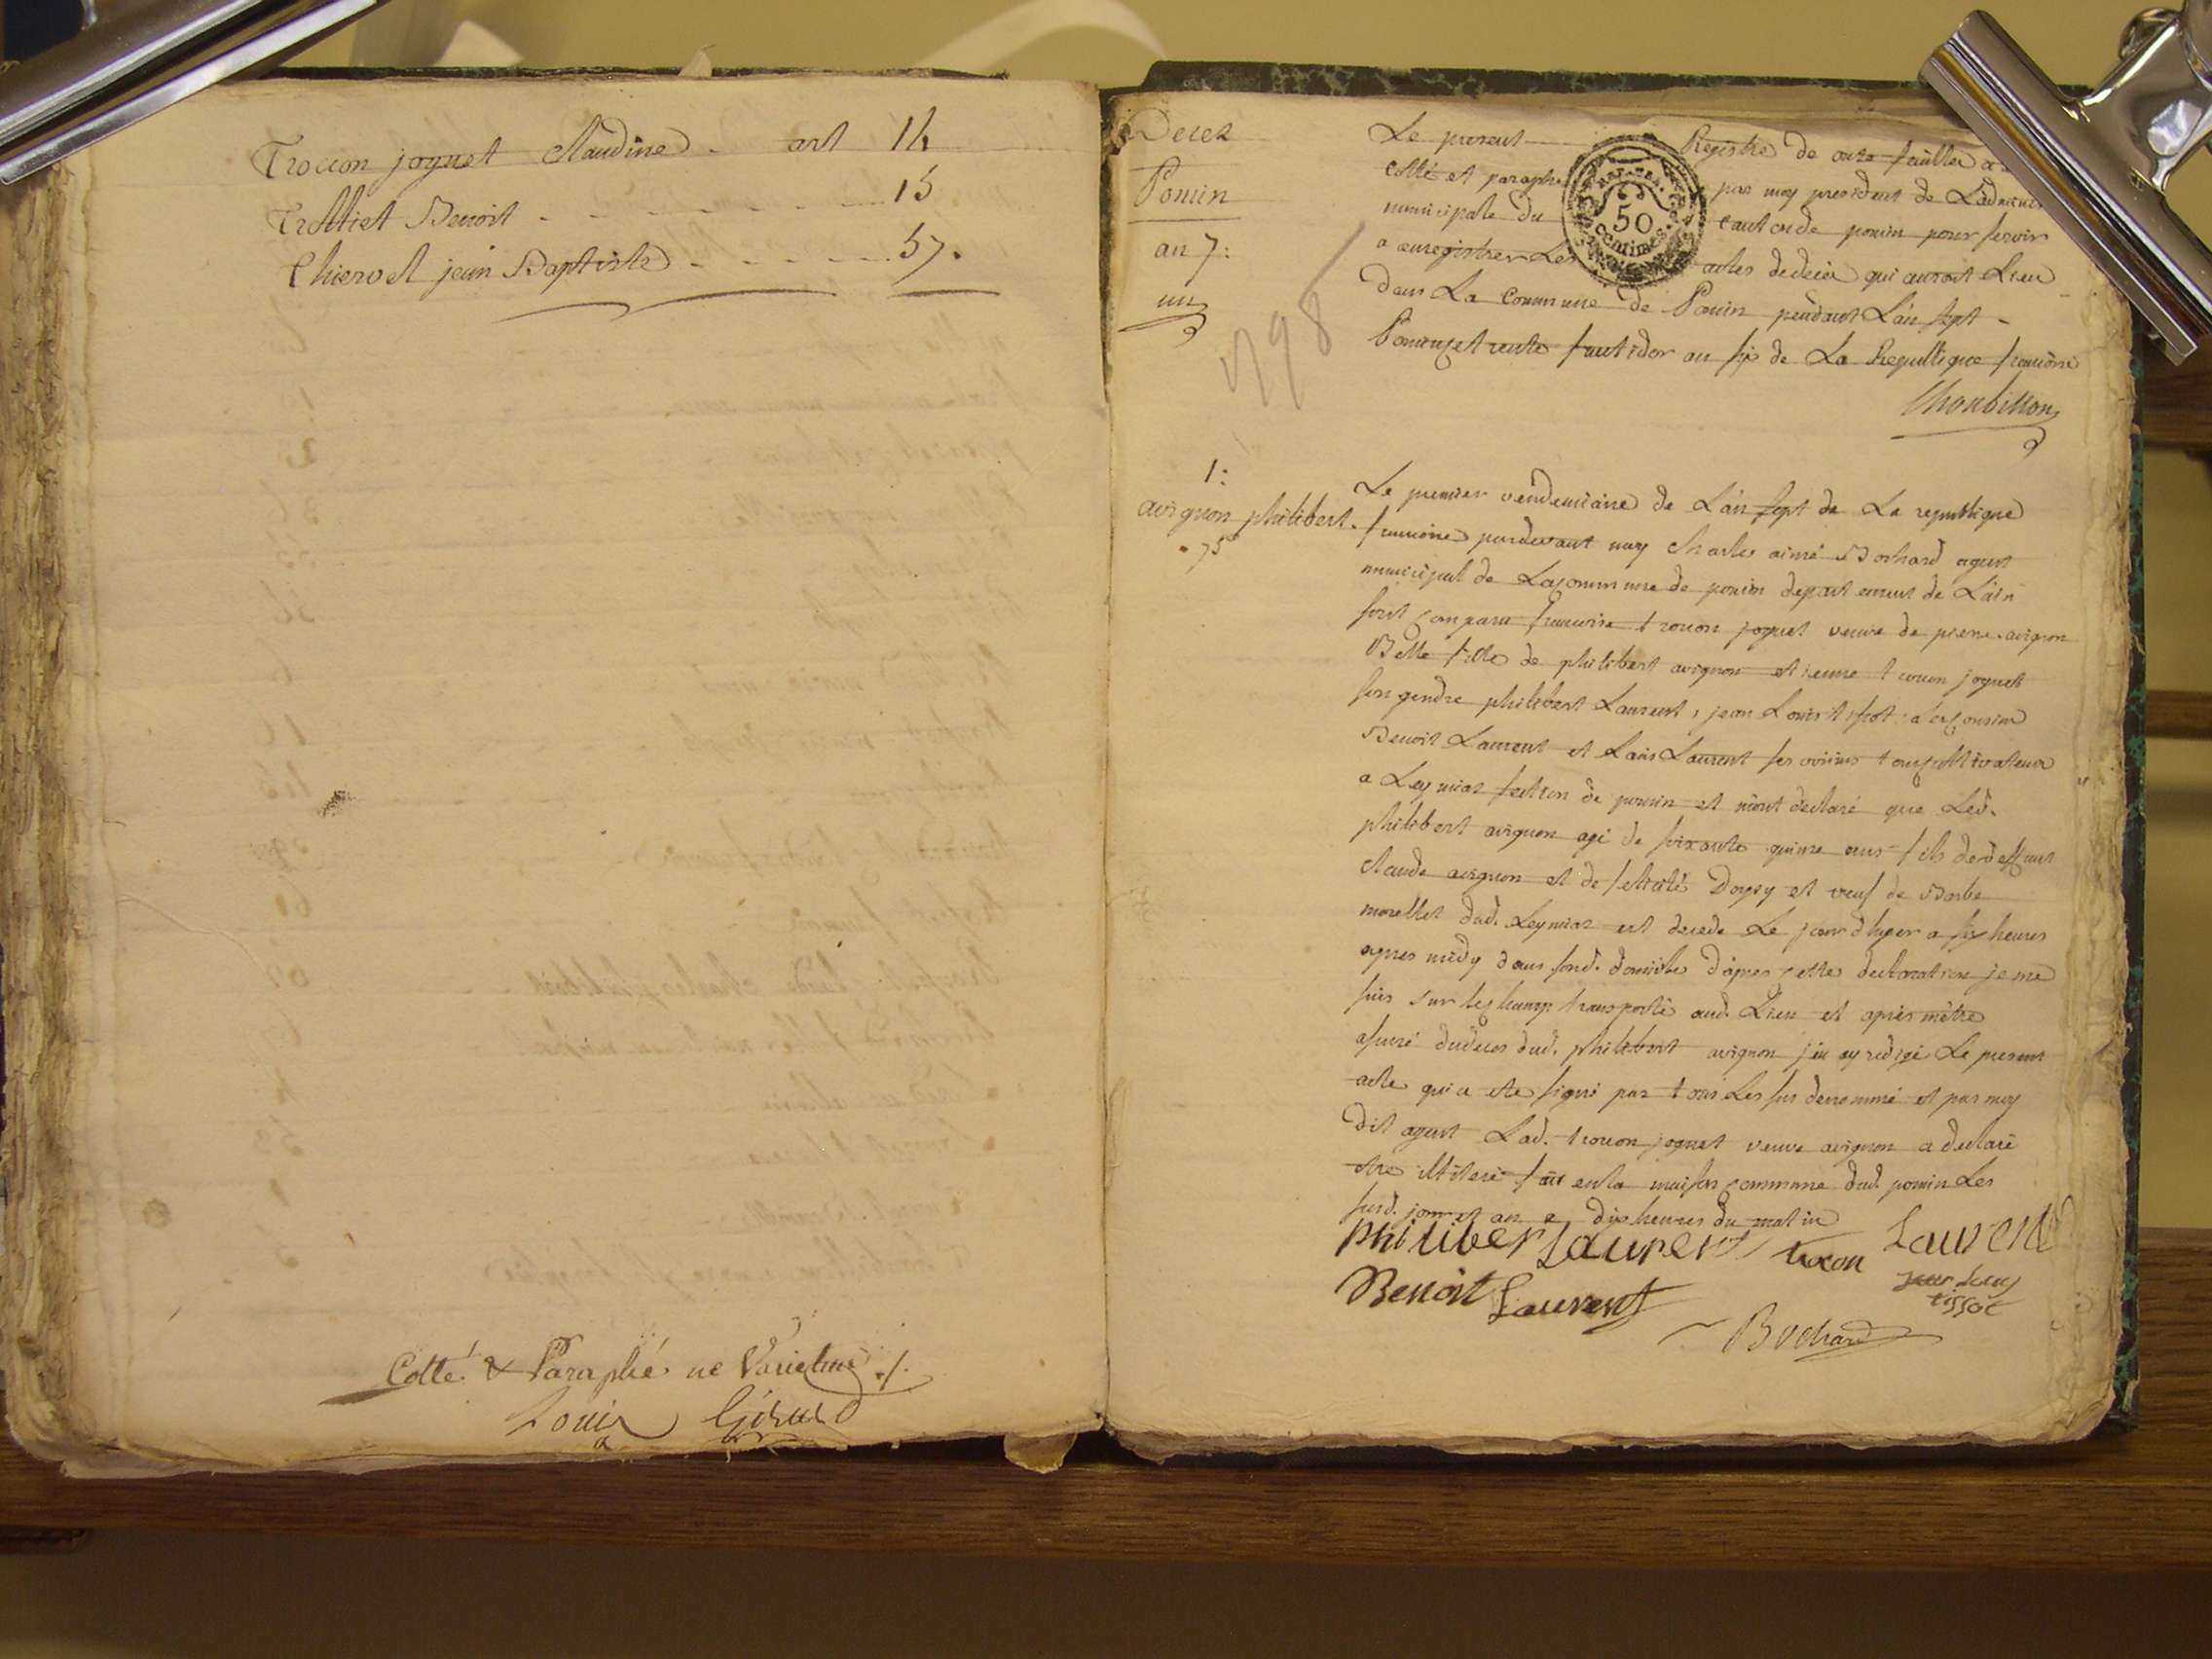 Trocon joguet Claudine. art 14
Trolliet Benoit 15
Thiervet jean Baptiste 57.
Cotté & Paraphé ne Varietur ./.
Louis Girard
Decez
Poncin
an 7:
un
1798
Le present Registre de onze feuilles a
cotté et paraphé par moy president de L'administ
municipale du canton de poncin pour servir
a enregistrer Les actes de decès qui auront Lieu
dans La Commune de Poncin pendant L'an sept -
Poncin Le trente fructidor an six de La Republique francoise
REP. FRA.
50
centimes
1:
avignon philibert.
75
Le premier vendemiaire de L'an sept de La republique
francoise pardevant moy Charles aimé Bochard agent
municipal de La commune de poncin departement de L'ain
sont comparu francoise trocon joguet veuve de pierre avignon
Belle fille de philibert avignon et trocon joguet
son gendre philibert Laurent, jean Louis tissot
Benoit Laurent et Louis Laurent ses voisins tous cultivateurs
a Leymiaz section de poncin et m'ont declaré que Led.
philibert avignon agé de soixante quinze ans fils de deffunt
claude avignon et de et veuf de Barbe
morellet dud. Leymiaz est decede Le jour d'hyer a six heures
apres midy dans sond. domicile d'apres cette declaration je me
suis sur le champ transporté aud. Lieu et apres m'etre
assuré du deces dud. philibert avignon j'en ay redigé Le present
acte qui a eté signé par tous Les sus denommé et par moy
dit agent Lad. trocon joguet veuve avignon a declaré
etre illiteré fait en la maison commune dud. poncin Les
susd. jour et an a dix heures du matin
philiber Laurent trocon Laurent
Benoit Laurent jean Louis
tissot
Bochard